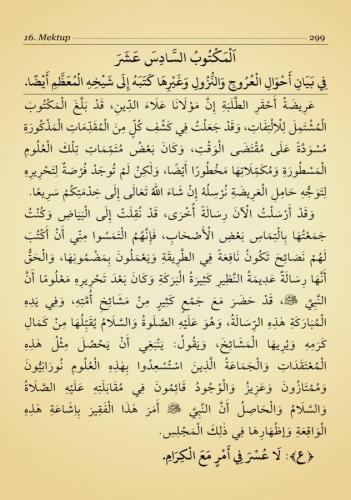 16. Mektup 299
اَلْمَكْتُوبُ السَّادِسَ عَشَرَ
فِي بَيَانِ أَحْوَالِ الْعُرُوجِ وَالنُّزُولِ وَغَيْرِهَا كَتَبَهُ إِلَى شَيْخِهِ الْمُعَظَّمِ أَيْضًا.
عَرِيضَةُ أَحْقَرِ الطَّلَبَةِ إِنَّ مَوْلَانَا عَلَاءَ الدِّينِ، قَدْ بَلَّغَ الْمَكْتُوبَ
الْمُشْتَمِلَ لِلْاِلْتِفَاتِ، وَقَدْ جَعَلْتُ فِي كَشْفِ كُلٍّ مِنَ الْمُقَدِّمَاتِ الْمَذْكُورَةِ
مُسَوَّدَةً عَلَى مُقْتَضَى الْوَقْتِ، وَكَانَ بَعْضُ مُتَمِّمَاتِ تِلْكَ الْعُلُومِ
الْمَسْطُورَةِ وَمُكَمِّلَاتِهَا مَخْطُورًا أَيْضًا، وَلَكِنْ لَمْ تُوجَدْ فُرْصَةٌ لِتَحْرِيرِهِ
لِتَوَجُّهِ حَامِلِ الْعَرِيضَةِ نُرْسِلُهُ إِنْ شَاءَ اللهُ تَعَالَى إِلَى خِدْمَتِكُمْ سَرِيعًا.
وَقَدْ أَرْسَلْتُ الْآنَ رِسَالَةً أُخْرَى، قَدْ نُقِلَتْ إِلَى الْبَيَاضِ وَكُنْتُ
جَمَعْتُهَا بِالْتِمَاسِ بَعْضِ الْأَصْحَابِ، فَإِنَّهُمُ الْتَمَسُوا مِنِّي أَنْ أَكْتُبَ
لَهُمْ نَصَائِحَ تَكُونُ نَافِعَةً فِي الطَّرِيقَةِ وَيَعْمَلُونَ بِمَضْمُونِهَا، وَالْحَقُّ
أَنَّهَا رِسَالَةٌ عَدِيمَةُ النَّظِيرِ كَثِيرَةُ الْبَرَكَةِ وَكَانَ بَعْدَ تَحْرِيرِهِ مَعْلُومًا أَنَّ
النَّبِيَّ ﷺ، قَدْ حَضَرَ مَعَ جَمْعٍ كَثِيرٍ مِنْ مَشَائِخِ أُمَّتِهِ، وَفِي يَدِهِ
الْمُبَارَكَةِ هَذِهِ الرِّسَالَةُ، وَهُوَ عَلَيْهِ الصَّلٰوةُ وَالسَّلَامُ يُقَبِّلُهَا مِنْ كَمَالِ
كَرَمِهِ وَيُرِيهَا الْمَشَائِخَ، وَيَقُولُ: يَنْبَغِي أَنْ يَحْصُلَ مِثْلُ هَذِهِ
الْمُعْتَقَدَاتِ وَالْجَمَاعَةُ الَّذِينَ اسْتَسْعَدُوا بِهَذِهِ الْعُلُومِ نُورَانِيُّونَ
وَمُمْتَازُونَ وَعَزِيزُ وَالْوُجُودِ قَائِمُونَ فِي مُقَابَلَتِهِ عَلَيْهِ الصَّلَاةُ
وَالسَّلَامُ وَالْحَاصِلُ أَنَّ النَّبِيَّ ﷺ أَمَرَ هَذَا الْفَقِيرَ بِإِشَاعَةِ هَذِهِ
الْوَاقِعَةِ وَإِظْهَارِهَا فِي ذَلِكَ الْمَجْلِسِ.
﴿ع﴾: لَا عُسْرَ فِي أَمْرٍ مَعَ الْكِرَامِ.